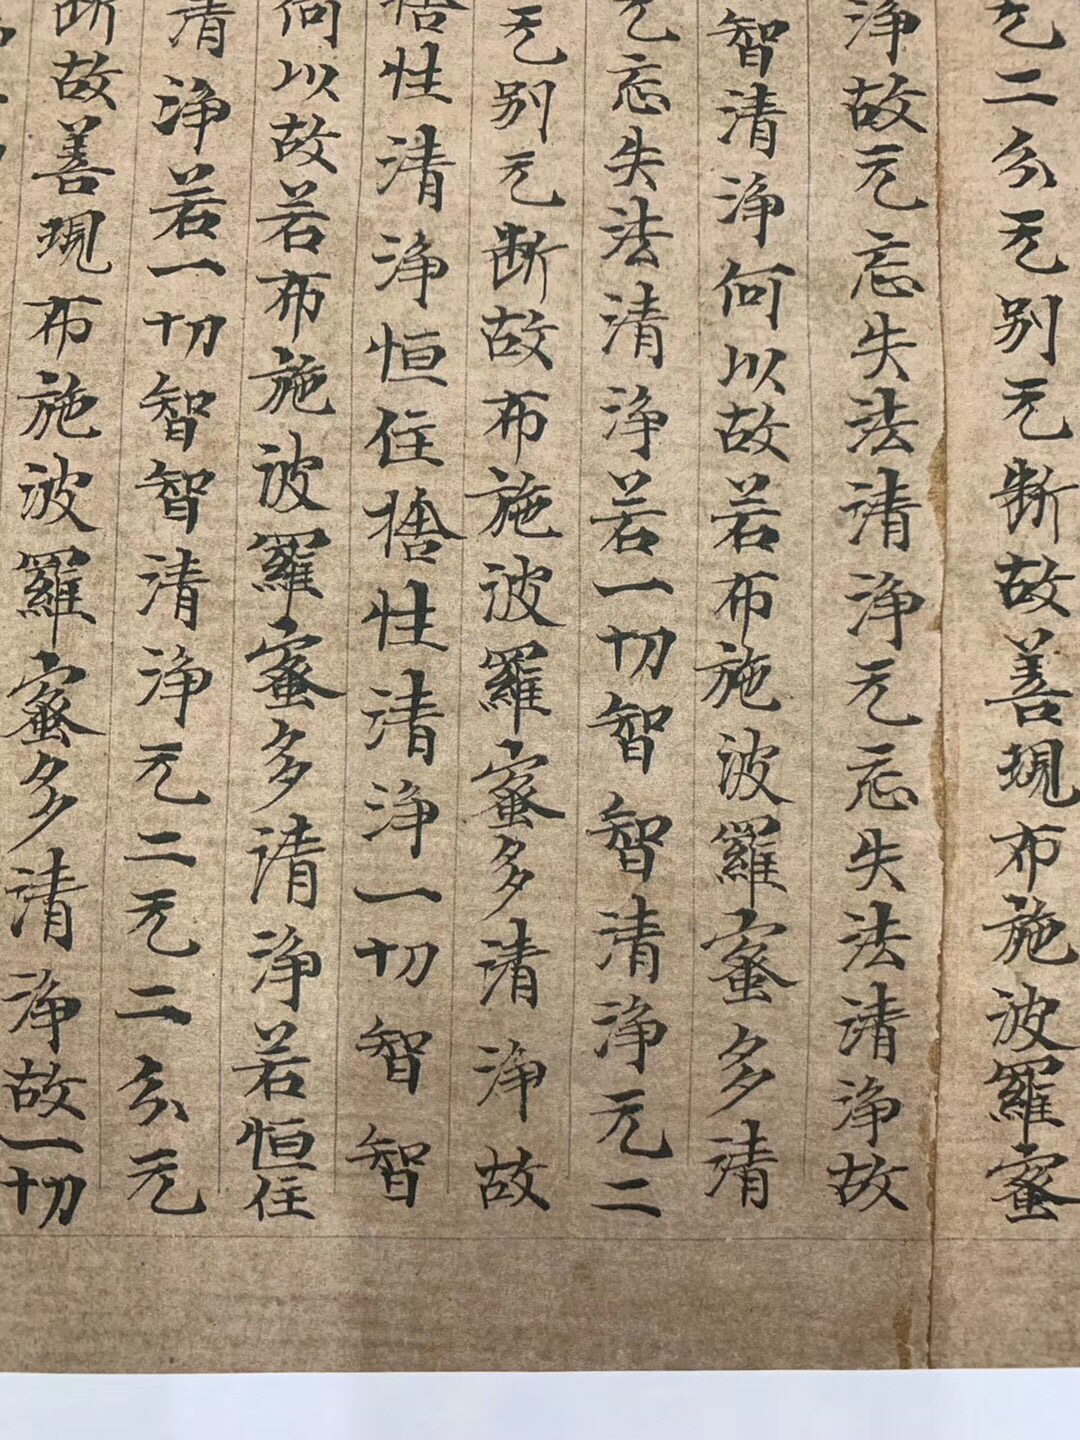 无二分无别无断故善現布施波羅蜜
淨故无忘失法清淨无忘失法清淨故
智清淨何以故若布施波羅蜜多清
无忘失法清淨若一切智智清淨无二
无别无断故布施波羅蜜多清淨故
捨性清淨恒住捨性清淨一切智智
何以故若布施波羅蜜多清淨若恒住
清淨若一切智智清淨无二无二分无
断故善現布施波羅蜜多清淨故一切